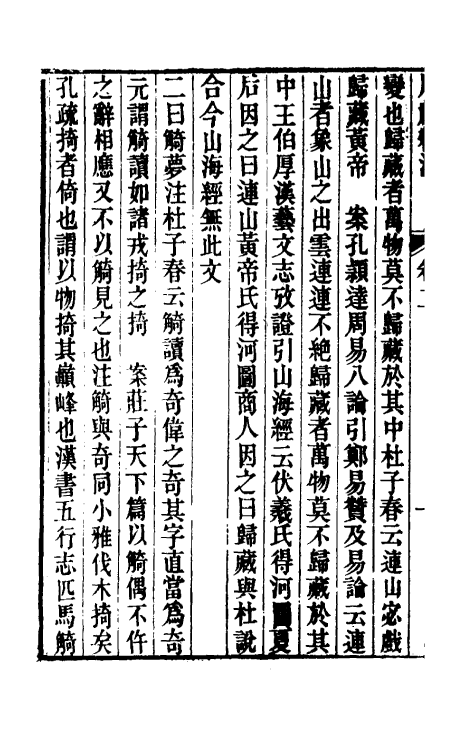 變也歸藏者萬物莫不歸藏於其中杜子春云連山宓戲
歸藏黃帝　案孔穎達周易八論引鄭易贊及易論云連
山者象山之出雲連連不絕歸藏者萬物莫不歸藏於其
中王伯厚漢藝文志攷證引山海經云伏羲氏得河圖夏
后因之曰連山黃帝氏得河圖商人因之曰歸藏與杜說
合今山海經無此文
二曰觭夢注杜子春云觭讀爲奇偉之奇其字直當爲奇
元謂觭讀如諸戎掎之掎　案莊子天下篇以觭偶不仵
之辭相應又不以觭見之也注觭與奇同小雅伐木掎矣
孔疏掎者倚也謂以物掎其巔峰也漢書五行志匹馬觭